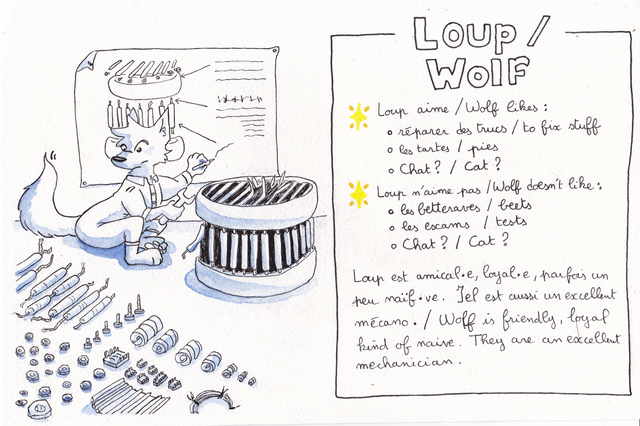 Loup /
Wolf
Loup aime / Wolf likes :
réparer des trucs / to fix stuff
les tartes / pies
Chat ? / Cat ?
Loup n'aime pas / Wolf doesn't like :
les betteraves / beets
les exams / tests
Chat ? / Cat ?
Loup est amical·e, loyal·e, parfois un
peu naïf·ve. Iel est aussi un excellent
mécano. / Wolf is friendly, loyal
kind of naive. They are an excellent
mechanician.